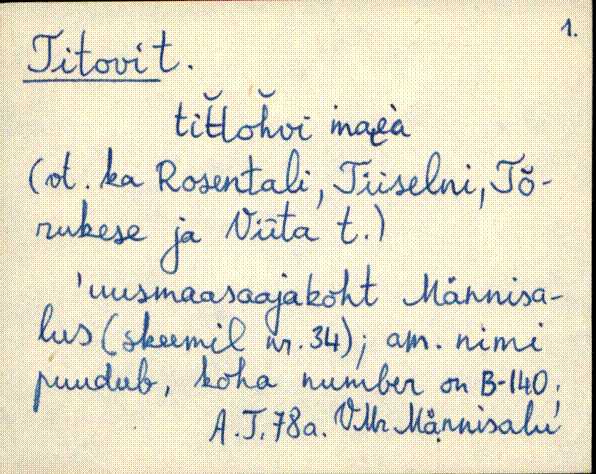 1.
Titovi t.
tiťťoȟvi maɛà
(vt. ka Rosentali, Tiiselni, Tõ-
rukese ja Viita t.)
'uusmaasaajakoht Männisa-
lus (skeemil nr. 34); am. nimi
puudub, koha number on B-140.'
A.T. 78a. VMr Männisalu